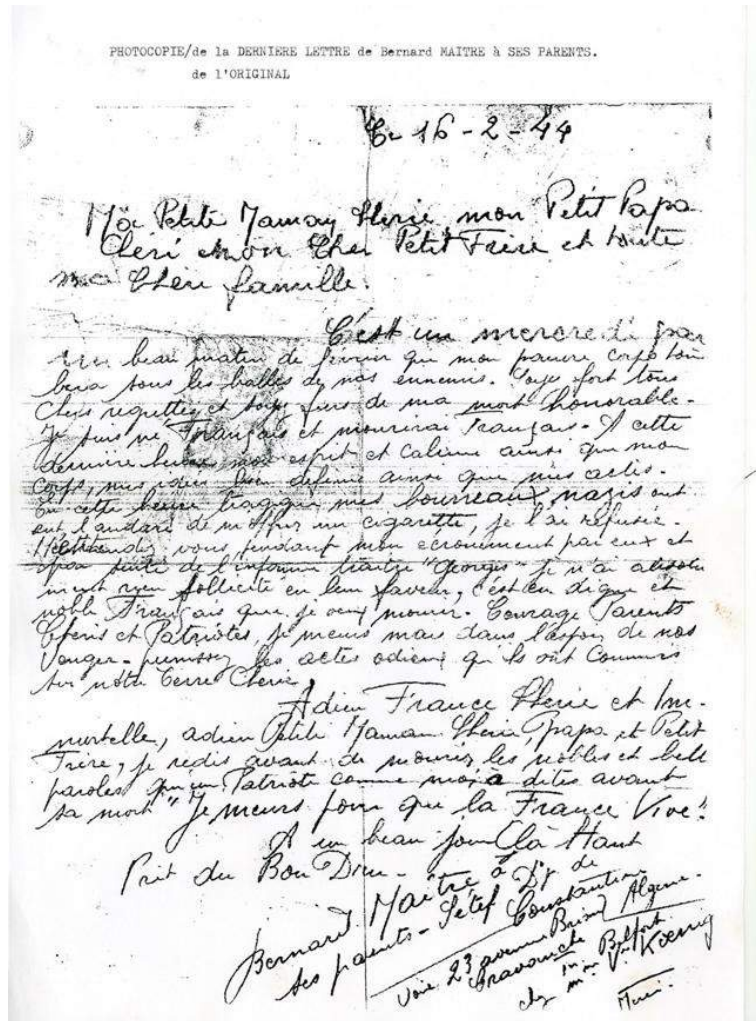 PHOTOCOPIE/de la DERNIERE LETTRE de Bernard MAITRE à SES PARENTS.
de l'ORIGINAL
Ce 16-2-44
Ma Petite Maman Cherie mon Petit Papa
Cheri mon Cher Petit Frère et toute
ma Chère famille.
C'est un mercredi par
un beau matin de février que mon pauvre corps tom
bera sous les balles de nos ennemis. Soyez fort tous
Chers regrettés et soyez fiers de ma mort honorable.
Je suis né Français et mourirai Français. A cette
dernière heure mon esprit et calme ainsi que mon
corps, mes idées bien définie ainsi que mes actes.
En cette heure tragique mes bourreaux nazis ont
eut l'audace de m'offrir un cigarette, je l'ai refusée.
vous pendant mon écrouement par eux et
suite de l'infame traitre "Georges" je n'ai absolu
ment rien sollicité en leur faveur, c'est en digne et
noble Français que je veux mourir. Courage Parents
Chéris et Patriotes, je meurs mais dans l'espoir de nos
Venger - les actes odieux qu'ils ont Commis
sur nôtre Terre Cherie.
Adieu France Cherie et Im-
mortelle, adieu Petite Maman Cherie, papa et Petit
Frère, je redis avant de mourir les nobles et bell
paroles qu'un Patriote comme moi a dites avant
sa mort "Je meurs pour que la France Vive"
A un beau jour Là Haut
Prèt du Bon Dieu -
Bernard Maitre à
ses parents - Sétif Dpt de
Constantine
Algerie.
Voir 23 avenue
in Belfort
chez mme Vve Koenig
Merci.